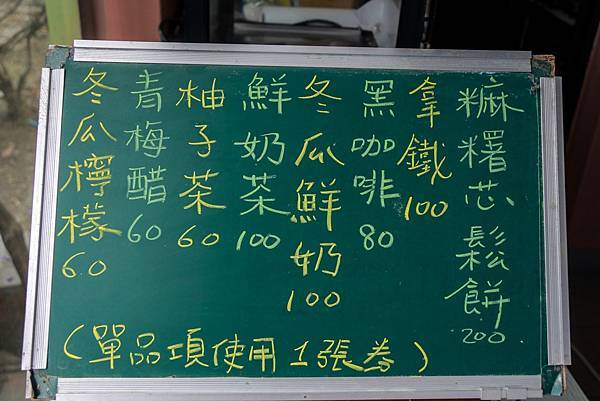 糜糬芯鬆餅 200
拿鐵 100
黑咖啡 80
冬瓜鮮奶 100
鮮奶茶 100
柚子茶 60
青梅醋 60
冬瓜檸檬 60
(單品項使用1張券)